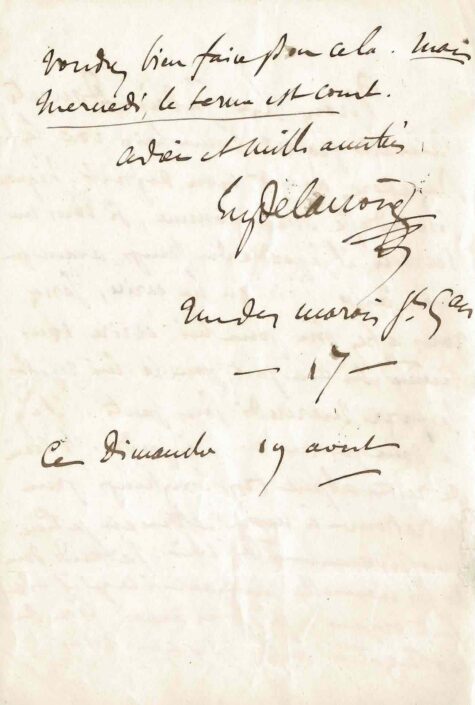 voudrez bien faire pour cela. mais
Mercredi, le terme est court.
adieu et mille amitiés
EugDelacroix
rue des marais St. Ger
— 17 —
Ce Dimanche 19 aout